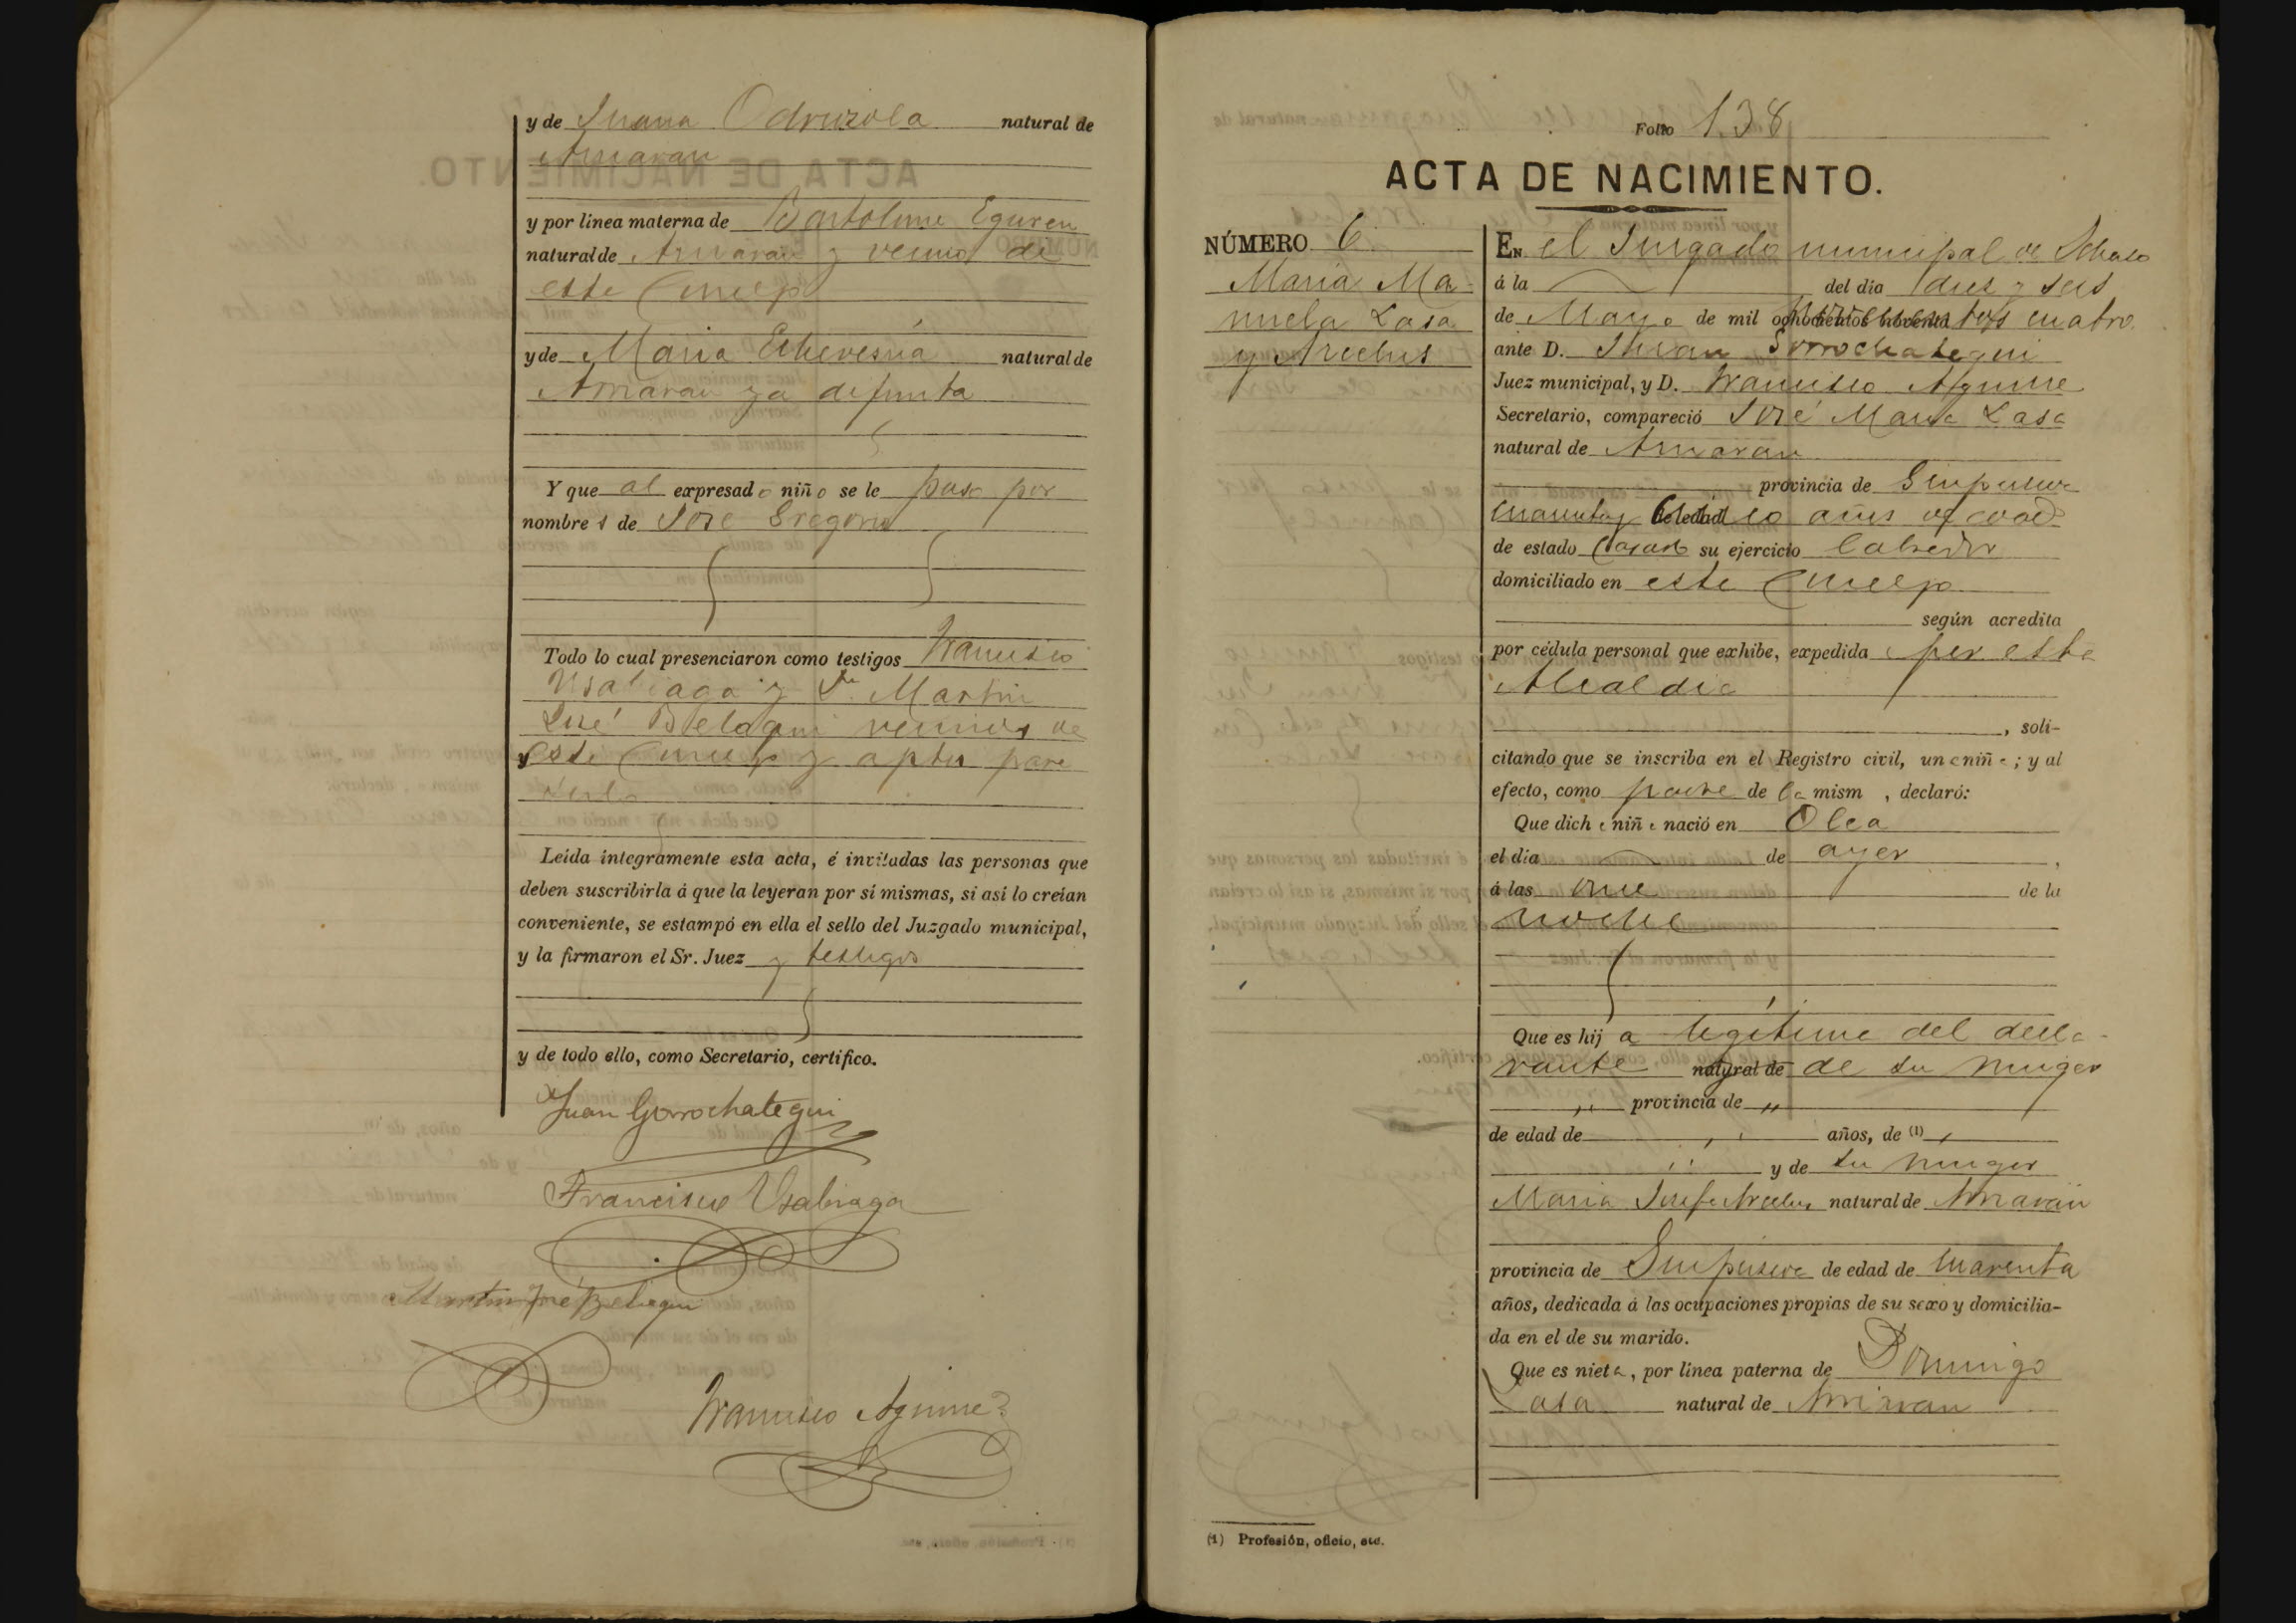 y de Juana Odriozola natural de
Amaran
y por linea materna de Bartolome Eguren
natural de Amaran y vecino de
este Concejo
y de Maria Echeverria natural de
Amaran ya difunta
Y que al expresado niño se le puso por
nombre s de José Gregorio
Todo lo cual presenciaron como testigos Francisco
Usabiaga y Dn Martin
José Beloqui vecinos de
este Concejo y aptos para
serlo
Leída íntegramente esta acta, é invitadas las personas que
deben suscribirla á que la leyeran por sí mismas, si así lo creían
conveniente, se estampó en ella el sello del Juzgado municipal,
y la firmaron el Sr. Juez y testigos
y de todo ello, como Secretario, certifico.
Juan Gorrochategui
Francisco Usabiaga
Martin José Beloqui
Francisco Aguirre
Folio 138
ACTA DE NACIMIENTO.
NÚMERO 6
Maria Ma-
nuela Lasa
y Arcelus
En el Jurgado municipal de
á la del dia dies y seis
de Mayo de mil ochocientos noventa novecientos cuatro
ante D. Juan Gorrochategui
Juez municipal, y D. Francisco Aguirre
Secretario, compareció José Maria Lasa
natural de Amaran
provincia de Guipuzcoa
cuarenta y cinco años de edad
de estado Casado su ejercicio labrador
domiciliado en este Concejo
según acredita
por cédula personal que exhibe, expedida por esta
Alcaldia
, soli-
citando que se inscriba en el Registro civil, una niña; y al
efecto, como padre de la mism , declaró:
Que dicha niña nació en Olea
el día de ayer,
á las once de la
noche
Que es hij a legitima del decla-
rante natural de de su muger
,, provincia de ,,
de edad de ,, años, de (1) ,
,, y de su muger
Maria Josefa Arcelus natural de Amaran
provincia de Guipuzcoa de edad de cuarenta
años, dedicada á las ocupaciones propias de su sexo y domicilia-
da en el de su marido.
Que es nieta, por linea paterna de Domingo
Lasa natural de Amaran
(1) Profesión, oficio, etc.